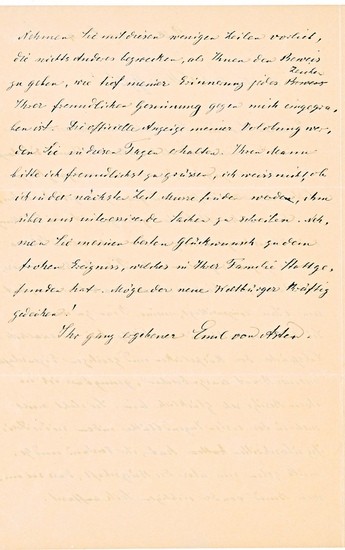 Nehmen Sie mit diesen wenigen Zeilen vorlieb,
die nichts Anderes bezwecken, als Ihnen den Beweis
zu geben, wie tief meiner Erinnerung jedes Zeichen
Ihrer freundlichen Gesinnung gegen mich eingegra-
ben ist. Die officielle Anzeige meiner Verlobung wer-
den Sie in diesen Tagen erhalten. Ihren Mann
bitte ich freundlichst zu grüssen, ich weiss nicht, ob
ich in der nächsten Zeit Musse finden werde, ihm
über uns interessirende Sachen zu schreiben. Neh-
men Sie meinen besten Glückwunsch zu dem
frohen Ereigniss, welches in Ihrer Familie stattge-
funden hat. Möge der neue Weltbürger kräftig
gedeihen!
Ihr ganz ergebener Emil von Asten.